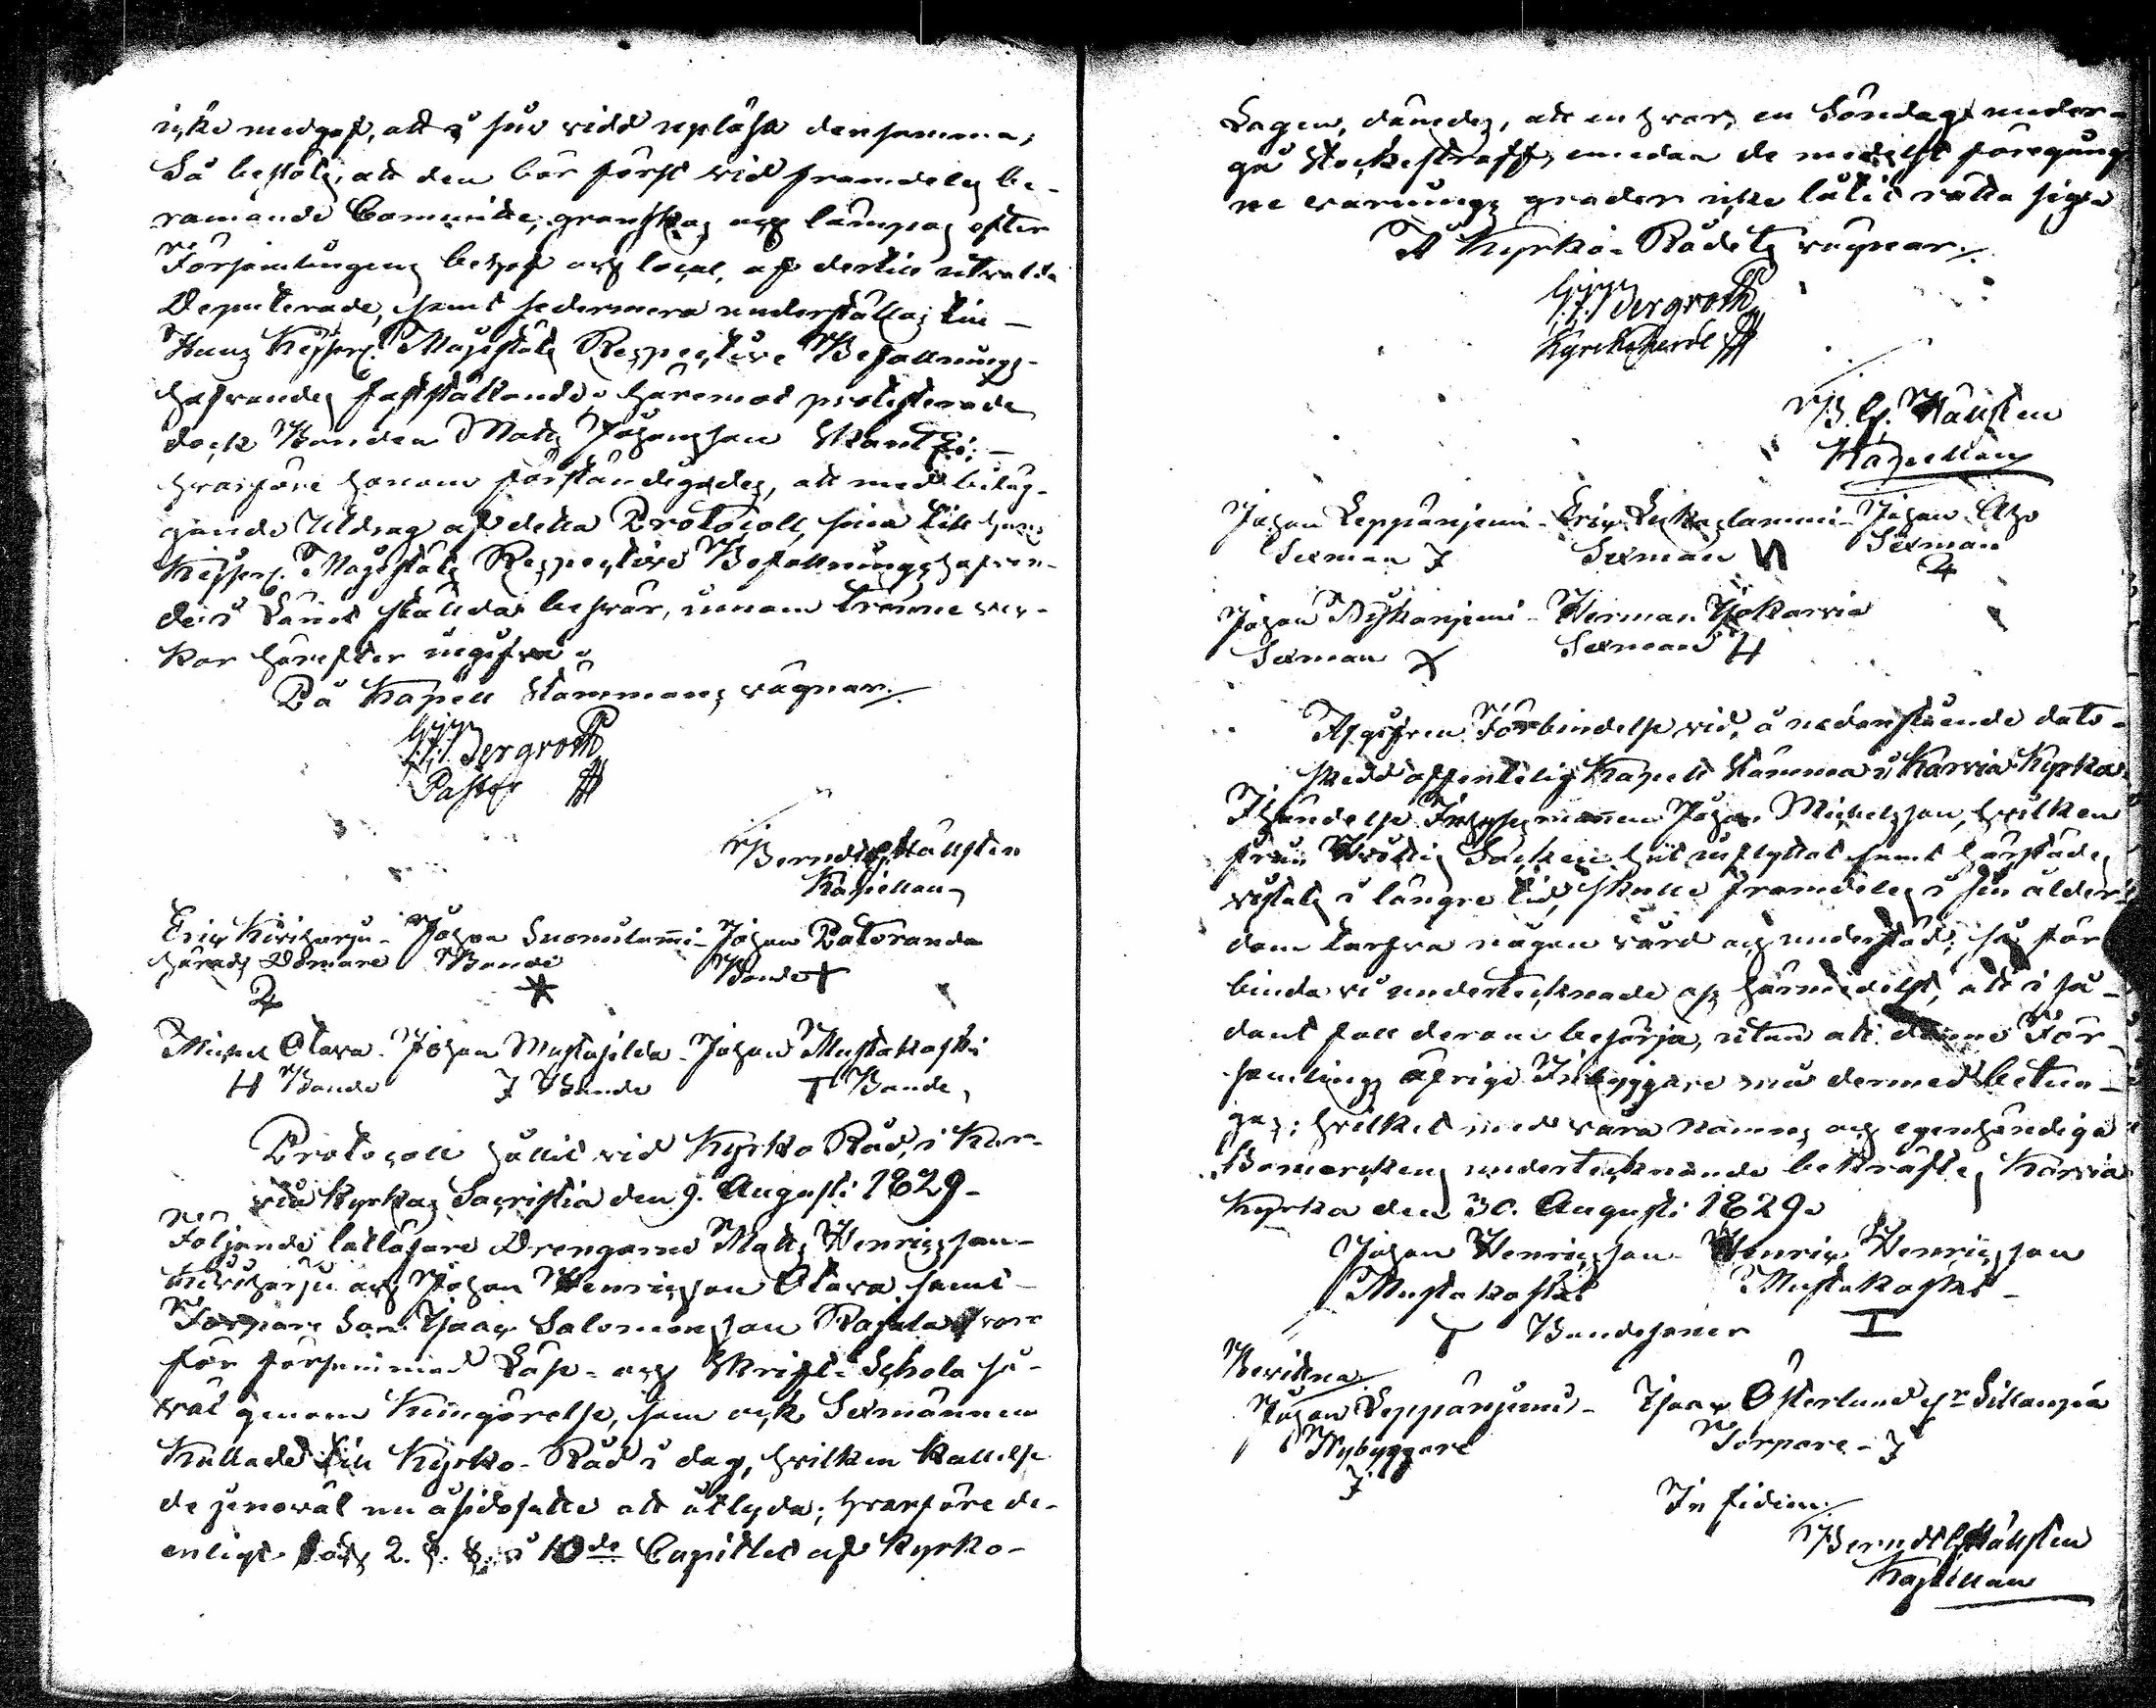 icke medgaf, att i sin vidd upläsa densamma;
Så beslöts, att den bör först vid framdeles be-
ramande Committe, granskas och lämpas efter
Församlingens behof och local, af dertill utvalde
Deputerade, samt sedermera underställas till
Hans Kejserl. Majestäts Respective Befallnings-
hafvandes fastställande. Häremot protesterade
dock Bonden Matts Johansson Skantzi; -
hvarföre honom förständigades, att med bilag-
gande Utdrag af detta Protocoll, sina till Hans
Kejserl. Majestäts Respective Befallningshafvan-
de i Länet ställda besvär, innom trenne vec-
kor härefter ingifva.
På Kapell Stämmans vägnar.
Bergroth
Pastor
Bernd Hällsten
Kapellan
Eric Kiviharju - Johan Suomilammi - Johan Patoranda
Härads Domare Bonde Bonde
Michel Otava - Johan Mustasilda - Johan Mustakoski
Bonde Bonde Bonde
Protocoll hållit vid Kyrko Råd, i Kar-
via Kyrkas Sacristia den 9. Augusti 1829 -
Följande lat läsare Drengarne Matts Henricsson -
Kiviharju och Johan Henricsson Otava samt -
Torpare Son Isaac Salomonsson Rajala voro
för försummad Läse- och Skrift-Schola så-
väl genom Kungörelse, som ock Sexmännen
Kallade till Kyrko-Råd i dag, hvilken Kallelse
de genoväl nu åsidosatte att åtlyda; hvarföre de-
enligt 2. §. i 10de Capitlet af Kyrko-
Lagen, dömdes, att en hvar, en Söndag under-
gå Stockestraff, emedan de medelst föregång-
ne varnings grader icke låtit rätta sig.
På Kyrko-Rådets vägnar.
Bergroth
Kyrckoherde
B. G. Hällsten
Kapellan
Johan Leppänjemi - Eric Lammi - Johan Aho
Sexman Sexman Sexman
Johan - Herman Ylikarvia
Sexman Sexman
Afgifven Förbindelse vid, å nedanstående dato -
skedd offentelig Kapell Stämma i Karvia Kyrka.
Ihändelse Inhysesmannen Johan Michelsson, hvilken
från Socken hit inflyttat samt härstädes
vistats i längre tid, skulle framdeles i sin ålder-
dom tarfva någon vård och understöd; så för
binda vi undertecknade oss härmedelst, att i så-
dant fall derom besörja, utan att denne För-
samlings öfrige Inbyggare må dermed betun-
gas; hvilket med våra namns och egenhändiga
Bomerckens undertecknande bekräftes, Karvia
Kyrka den 30. Augusti 1829.
Johan Henricsson - Henric Henricsson
Mustakoski Mustakoski -
Bondesöner
Bevittna
Johan Leppänjemi - Isaac Österlund Sillanpää
Nybyggare Torpare -
In fidem.
Bernd G. Hällsten
Kapellan